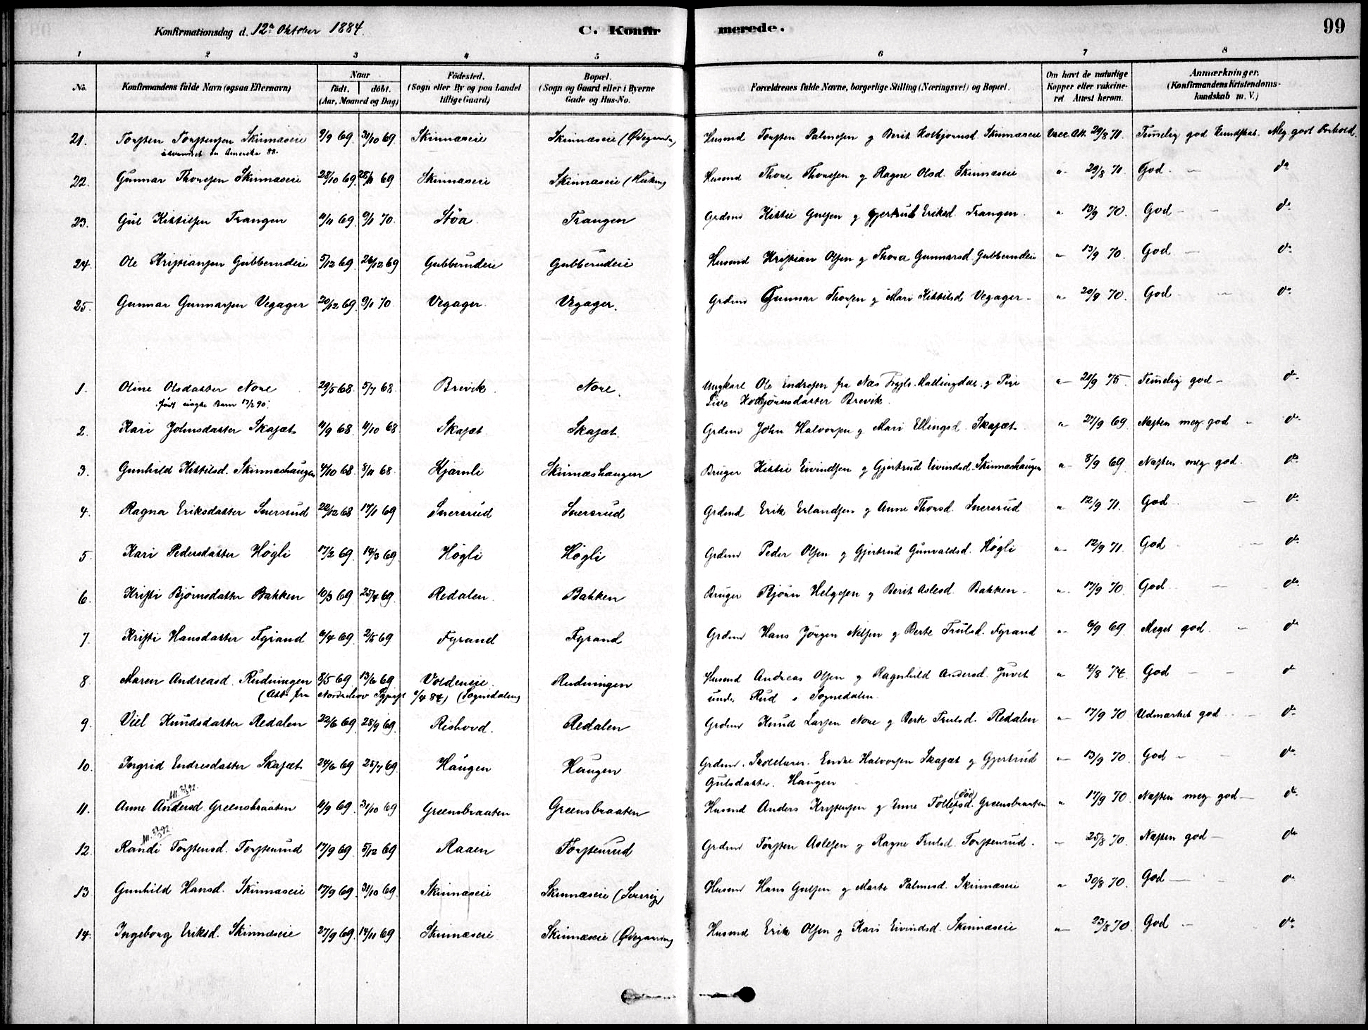 Konfirmationsdag d. 12te Oktober 1884.
C. Konfirmerede.
99
1 2 3 4 5 6 7 8
No. Konfirmandens fulde Navn (ogsaa Efternavn) Naar født. døbt. (Aar, Maaned og Dag) Fødested. (Sogn eller By og paa Landet tillige Gaard) Bopæl. (Sogn og Gaard eller i Byerne Gade og Hus-No. Forældrenes fulde Navne, borgerlige Stilling (Næringsvei) og Bopæl. Om havt de naturlige Kopper eller vakcineret Attest herom. Anmærkninger. (Konfirmandens Kristendomskundskab m. V.)
21. Torsten Torstensen Skinnæseie 9/9 69 31/10 69 Skinnæseie Skinnæseie Husmd Torsten Palmesen og Berit Kolbjørnsd. Skinnæseie Vacc. Att. 29/8 71. Temmelig god Kundskab. Meg godt Forhold.
udvandret til Amerika 88.
22. Gunnar Thoresen Skinnæseie 28/10 69 25/11 69 Skinnæseie Skinnæseie Husmd Thore Thoresen og Ragne Olsd. Skinnæseie " 29/8 71. God - do
23. Gul Kittilsen Trangen 4/11 69 9/1 70. Støa Trangen Grdmd Kittil Gulsen og Gjertrud Eriksd. Trangen. " 13/9 70. God - do
24. Ole Kristiansen Gubberudeie 5/12 69 26/12 69 Gubberudeie Gubberudeie Husmd Kristian Olsen og Thora Gunnarsd. Gubberudeie " 13/9 70. God - do
25. Gunnar Gunnarsen Vegager 20/12 69 9/1 70 Vegager. Vegager. Grdmd Gunnar Thorsen og Mari Kittilsd Vegager - " 20/9 70. God - do
1 Oline Olsdatter Nore 29/5 68 5/7 68 Brevik Nore. Ungkarl Ole Endresen fra Næs Prgjld. Hallingdal og Pige " 24/9 75. Temmelig god - do
født uægte Barn Sive Kolbjørnsdatter Brevik.
2. Kari Johnsdatter Skajæt 4/9 68 4/10 68 Skajæt Skajæt. Grdmd John Halvorsen og Mari Ellingsd. Skajæt " 21/9 69 Næsten meg god - do
3. Gunhild Kittilsd. Skinnæshaugen 4/10 68 8/11 68. Kjemli Skinnæshaugen Bruger Kittil Eivindsen og Gjertrud Eivindsd. Skinnæshaugen " 8/9 69 Næsten meg god. do
4. Ragna Eriksdatter Sversrud 22/12 68 17/1 69 Sversrud Sversrud Grdmd Erik Erlandsen og Anne Thorsd. Sversrud " 12/9 71. God - do
5 Kari Pedersdatter Høgli 17/2 69. 14/3 69 Høgli Høgli Grdmd Peder Olsen og Gjertrud Gunvaldsd. Høgli " 12/9 71. God - do
6. Kristi Bjørnsdatter Bakken 10/3 69 25/4 69. Redalen. Bakken Bruger Bjørn Helgesen og Berit Aslesd. Bakken - " 17/9 70. God - do
7. Kristi Hansdatter Fyrand 4/4 69 2/5 69 Fyrand Fyrand Grdmd Hans Jørgen Nilsen og Berte Trulsd. Fyrand " 6/9 69 Meget god. - do
8 Maren Andreasd. Rudningen 2/5 69 13/6 69. Voldeneie. Rudningen Husmd Andreas Olsen og Ragnhild Andersd. Juvet " 4/8 74. God - do
(Att. fra Norderhov 4/4 84) (Sognedalen) under Rud i Sognedalen.
9. Viel Knudsdatter Redalen 23/6 69 25/9 69. Rishovd. Redalen Grdmd Knud Larsen Nore og Berte Trulsd. Redalen - 17/9 70 Udmærket god. do
10. Ingrid Endresdatter Skajæt 24/6 69 25/7 69. Haugen Haugen Grdmd. Skolelærer. Endre Halvorsen Skajæt og Gjertrud " 13/9 70. God - do
Gulsdatter Haugen -
11. Anne Andersd. Greensbraaten 4/9 69 31/10 69 Greensbraaten Greensbraaten Husmd Anders Kristensen og Enne Tollefsd. Greensbraaten " 17/9 70. Næsten meg god - do
12. Randi Torstensd. Torstenrud 17/9 69. 5/12 69 Raaen Torstenrud Grdmd Torsten Aslesen og Ragne Trulsd. Torstenrud. - 25/8 70. Næsten god - do
13 Gunhild Hansd. Skinnæseie 17/9 69. 31/10 69 Skinnæseie Skinnæseie Husmd Hans Gulsen og Marte Palmesd. Skinnæseie " 30/8 70. God - do
14. Ingeborg Eriksd. Skinnæseie 27/9 69. 14/11 69 Skinnæseie Skinnæseie Husmd Erik Olsen og Kari Eivindsd. Skinnæseie " 23/8 70. God - do